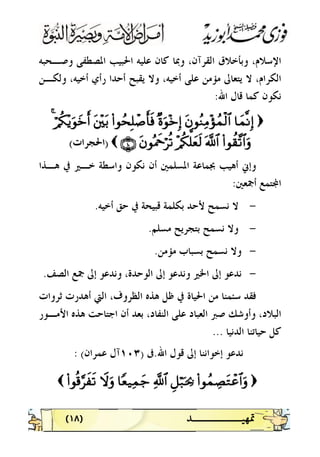 فوزي محمد أبوزيد أمراض الأمة وبصيرة النبوة
الإسلام، وبأخلاق القرآن، وبما كان عليه الحبيب المصطفى وصـــحبه
الكرام، لا يتعالى مؤمن على أخيه، ولا يقبح أحدا رأي أخيه، ولكـــن
نكون كما قال الله:
﴿ إِنَّمَا الْمُؤْمِنُونَ إِخْوَةٌ فَأَصْلِحُوا بَيْنَ أَخَوَيْكُمْ ۚ
وَاتَّقُوا اللَّهَ لَعَلَّكُمْ تُرْحَمُونَ ۝١٠ ﴾ (الحجرات)
وإني أهيب بجماعة المسلمين أن نكون واسطة خـــير في هـــذا
المجتمع أجمعين:
- لا نسمح لأحد بكلمة قبيحة في حق أخيه.
- ولا نسمح بتجريح مسلم.
- ولا نسمح بسباب مؤمن.
- ندعو إلى الخير وندعو إلى الوحدة، وندعو إلى جمع الصف.
فقد سئمنا من الحياة في ظل هذه الظروف، التي أهدرت ثروات
البلاد، وأوشك صبر العباد على النفاد، بعد أن اجتاحت هذه الأمـــور
كل حياتنا الدنيا ...
ندعو إخواننا إلى قول الله.فى (١٠٣آل عمران) :
﴿ وَاعْتَصِمُوا بِحَبْلِ اللَّهِ جَمِيعًا وَلَا تَفَرَّقُوا ﴾
تمهيـــــــــــد (١٨)